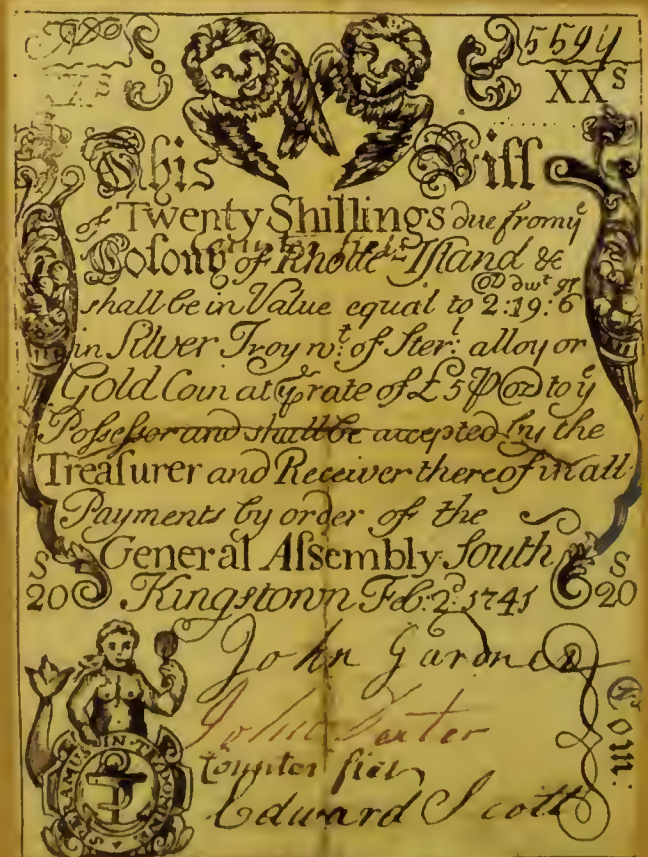 5594
XXs XXs
This Bill
of Twenty Shillings due from ye
Colony of Rhode-Island &
oz dwt gr
shall be in Value equal to 2:19:6
in Silver Troy wt. of Ster: alloy or
Gold Coin at ye rate of £5 ⅌ oz to ye
Possessor and shall be accepted by the
Treasurer and Receiver thereof in all
Payments by order of the
S General Assembly South S
20 Kingstown Feb: 2d: 1741 20
John Gardner
John
Com:
Counter fiet
Edward Scott
SPERAMUS IN TE DOMINE